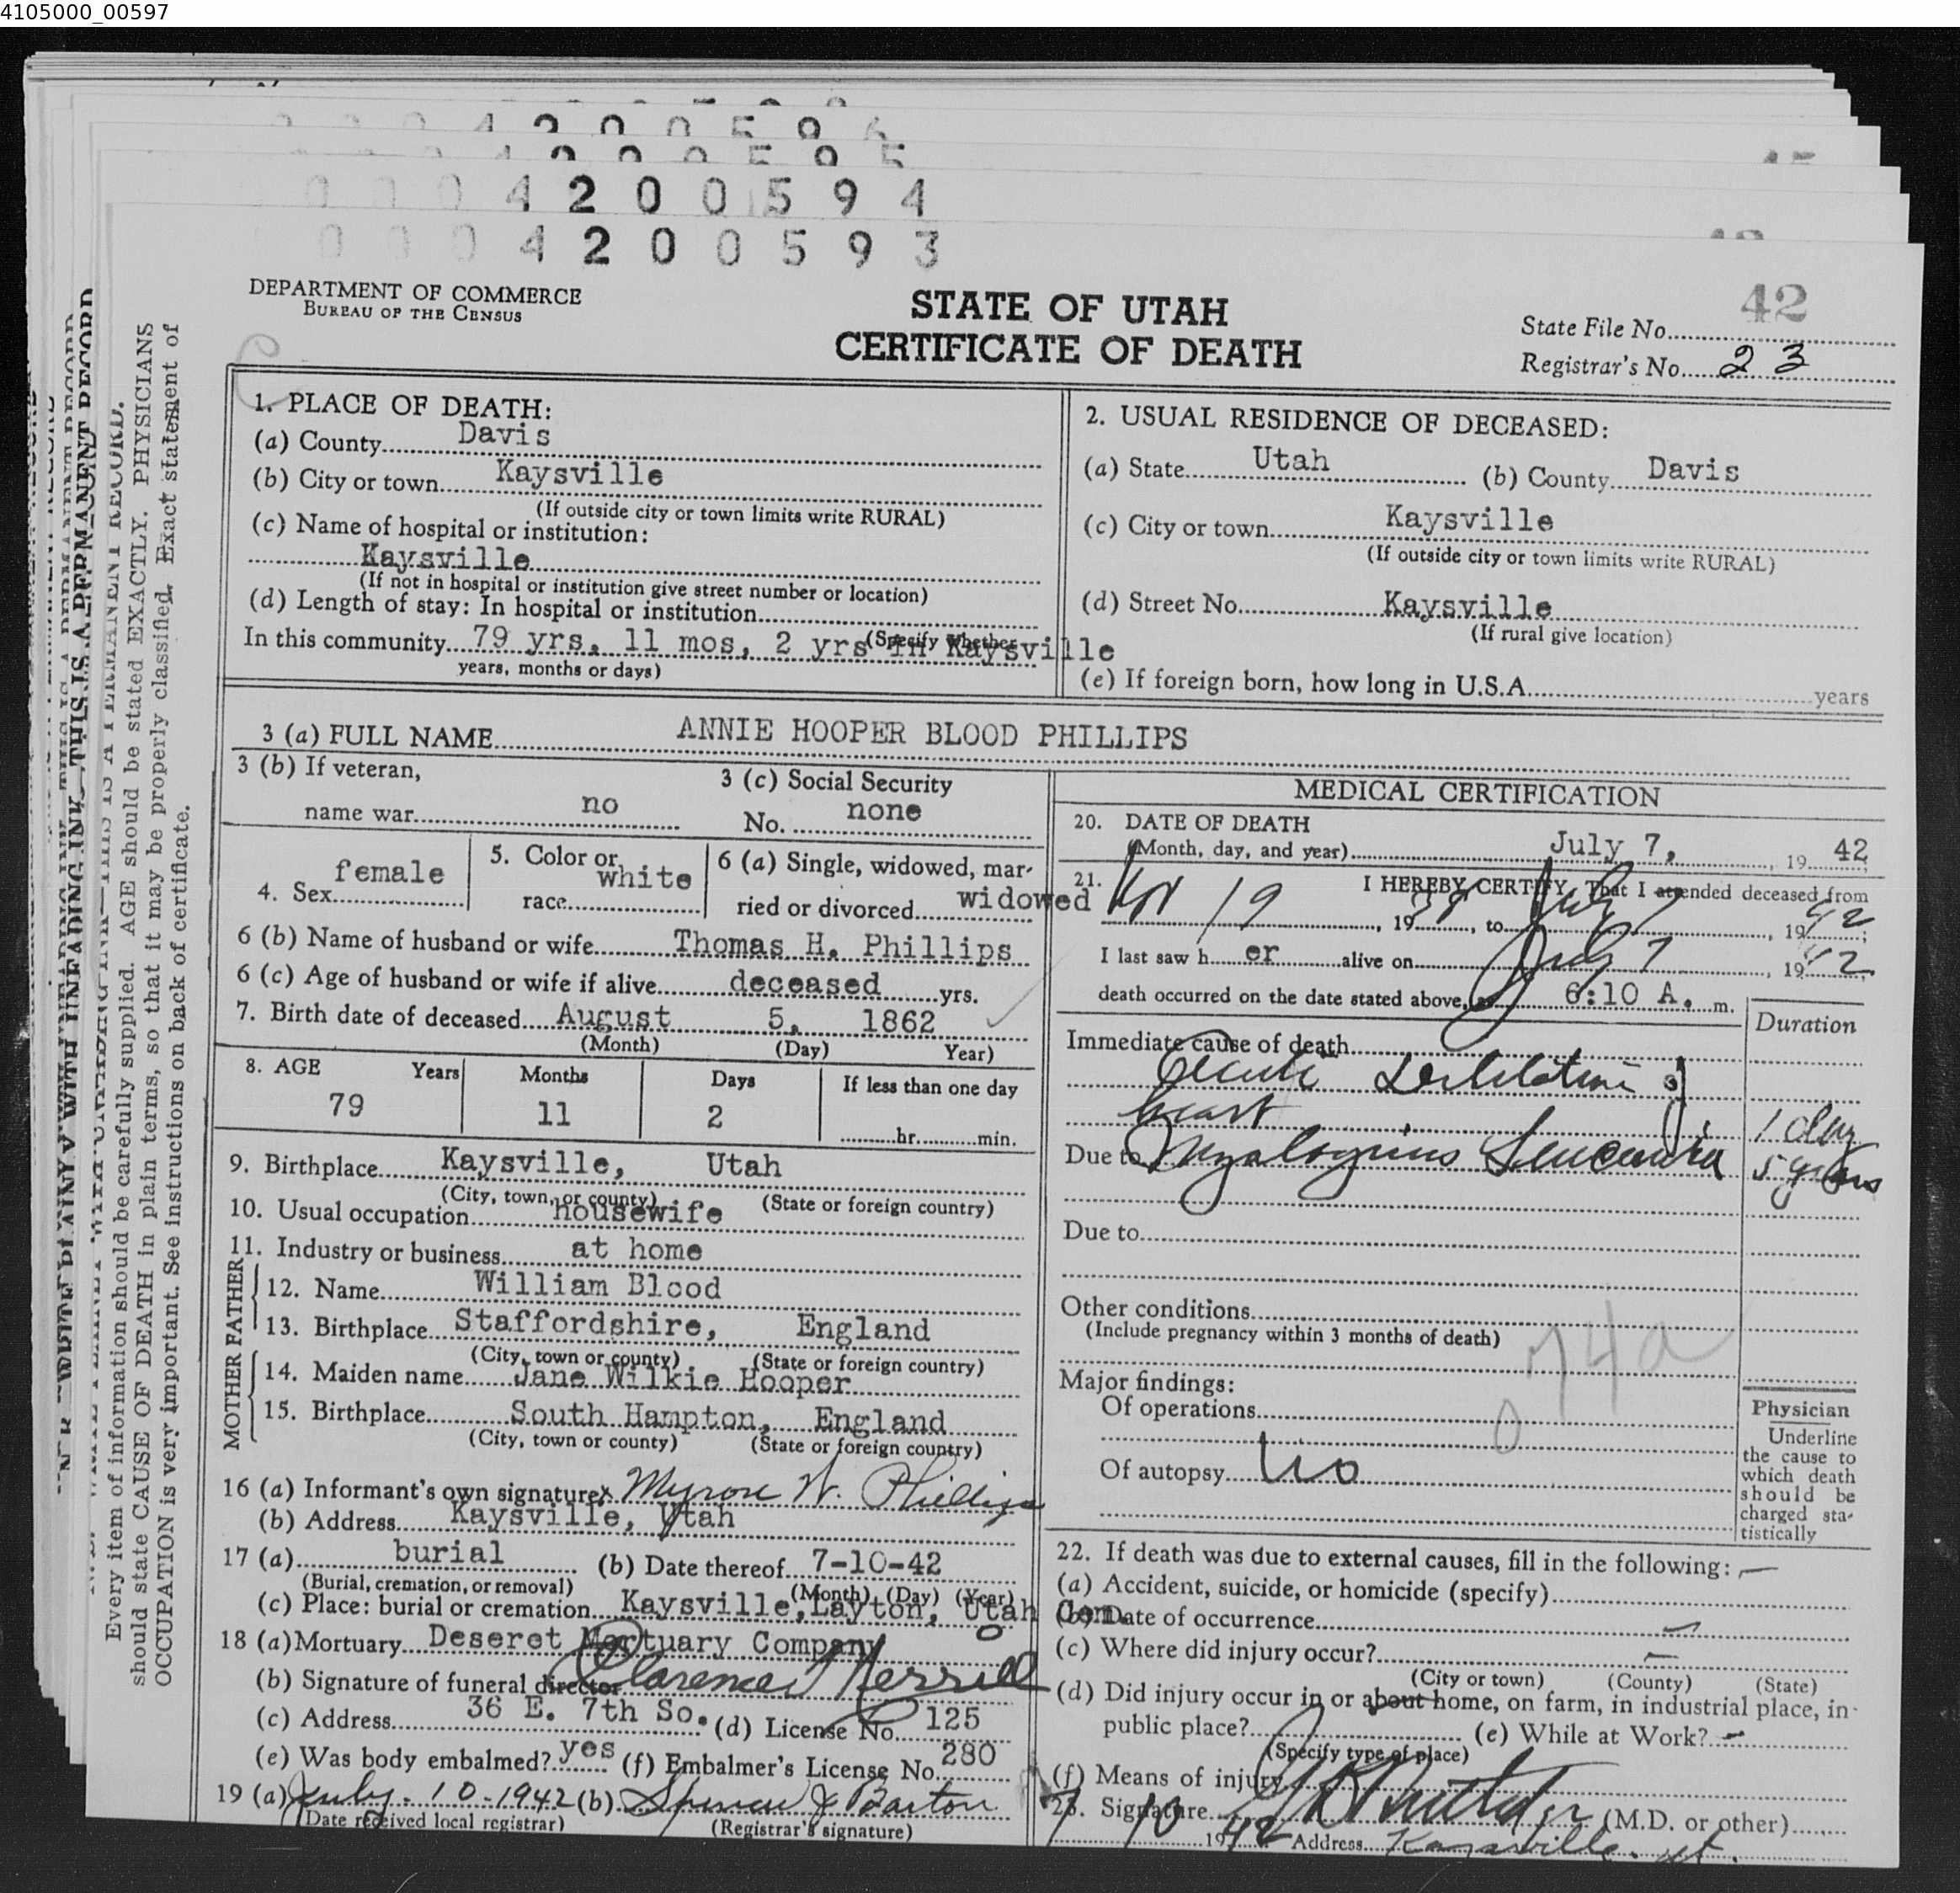 4105000_00597
0 0 0 4 2 0 0 5 9 4
0 0 0 4 2 0 0 5 9 3
DEPARTMENT OF COMMERCE
BUREAU OF THE CENSUS
STATE OF UTAH
CERTIFICATE OF DEATH
42
State File No.
Registrar's No. 23
1. PLACE OF DEATH:
(a) County Davis
(b) City or town Kaysville
(If outside city or town limits write RURAL)
(c) Name of hospital or institution:
Kaysville
(If not in hospital or institution give street number or location)
(d) Length of stay: In hospital or institution
(Specify whether
In this community 79 yrs, 11 mos, 2 yrs in Kaysville
years, months or days)
2. USUAL RESIDENCE OF DECEASED:
(a) State Utah (b) County Davis
(c) City or town Kaysville
(If outside city or town limits write RURAL)
(d) Street No. Kaysville
(If rural give location)
(e) If foreign born, how long in U.S.A. years
3 (a) FULL NAME ANNIE HOOPER BLOOD PHILLIPS
3 (b) If veteran,
name war no
3 (c) Social Security
No. none
4. Sex female
5. Color or
race white
6 (a) Single, widowed, mar-
ried or divorced widowed
6 (b) Name of husband or wife Thomas H. Phillips
6 (c) Age of husband or wife if alive deceased yrs.
7. Birth date of deceased August 5, 1862
(Month) (Day) Year)
8. AGE Years Months Days If less than one day
79 11 2 hr. min.
9. Birthplace Kaysville, Utah
(City, town, or county) (State or foreign country)
10. Usual occupation housewife
11. Industry or business at home
FATHER
12. Name William Blood
13. Birthplace Staffordshire, England
(City, town or county) (State or foreign country)
MOTHER
14. Maiden name Jane Wilkie Hooper
15. Birthplace South Hampton, England
(City, town or county) (State or foreign country)
16 (a) Informant's own signature x Myron W. Phillips
(b) Address Kaysville, Utah
17 (a) burial (b) Date thereof 7-10-42
(Burial, cremation, or removal) (Month) (Day) (Year)
(c) Place: burial or cremation Kaysville, Layton, Utah Cem.
18 (a) Mortuary Deseret Mortuary Company
(b) Signature of funeral director Clarence Merrill
(c) Address 36 E. 7th So. (d) License No. 125
(e) Was body embalmed? yes (f) Embalmer's License No. 280
19 (a) July. 10-1942 (b) Spencer J Barton
(Date received local registrar) (Registrar's signature)
MEDICAL CERTIFICATION
20. DATE OF DEATH
(Month, day, and year) July 7, 19 42
21. I HEREBY CERTIFY, That I attended deceased from
19, 1938, to July 7, 1942;
I last saw her alive on July 7, 1942
death occurred on the date stated above, at 6:10 A. m.
Duration
Immediate cause of death
Acute Dilatation of
heart 1 day
Due to Myelogenius Leucemia 5 years
Due to
Other conditions
(Include pregnancy within 3 months of death)
74a
Major findings:
Of operations 0
Of autopsy no
Physician
Underline
the cause to
which death
should be
charged sta-
tistically
22. If death was due to external causes, fill in the following: —
(a) Accident, suicide, or homicide (specify)
(b) Date of occurrence —
(c) Where did injury occur? —
(City or town) (County) (State)
(d) Did injury occur in or about home, on farm, in industrial place, in
public place? (e) While at Work? -
(Specify type of place)
(f) Means of injury
23. Signature (M.D. or other)
7 10 1942 Address Kaysville. Ut.
Every item of information should be carefully supplied. AGE should be stated EXACTLY. PHYSICIANS
should state CAUSE OF DEATH in plain terms, so that it may be properly classified. Exact statement of
OCCUPATION is very important. See instructions on back of certificate.